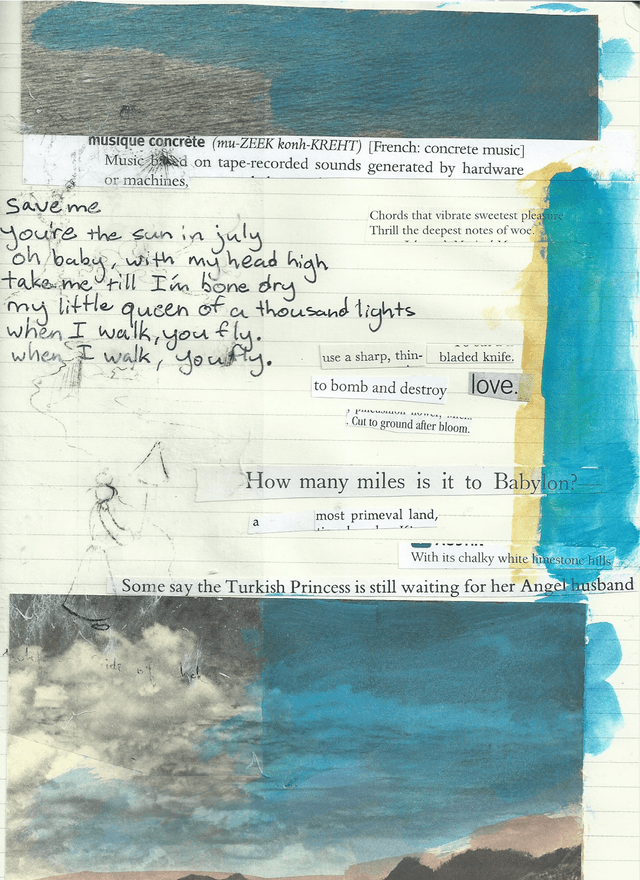 musique concrète (mu-ZEEK konh-KREHT) [French: concrete music]
Music based on tape-recorded sounds generated by hardware
or machines,
Save me
you're the sun in july
oh baby, with my head high
take me till I'm bone dry
my little queen of a thousand lights
when I walk, you fly.
when I walk, you fly.
Chords that vibrate sweetest pleasure
Thrill the deepest notes of woe.
use a sharp, thin-
bladed knife.
to bomb and destroy
love.
Cut to ground after bloom.
How many miles is it to Babylon?
a
most primeval land,
With its chalky white limestone hills
Some say the Turkish Princess is still waiting for her Angel husband